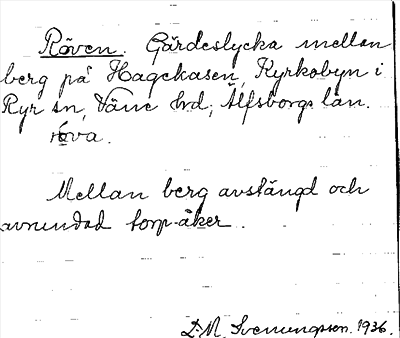 Röven. Gärdeslycka mellan
berg på Hagekasen, Kyrkobyn i
Ryr sn, Väne hrd, Älfsborgs län.
röva.
Mellan berg avstängd och
avrundad torp-åker.
D. M. Svenungsson. 1936.